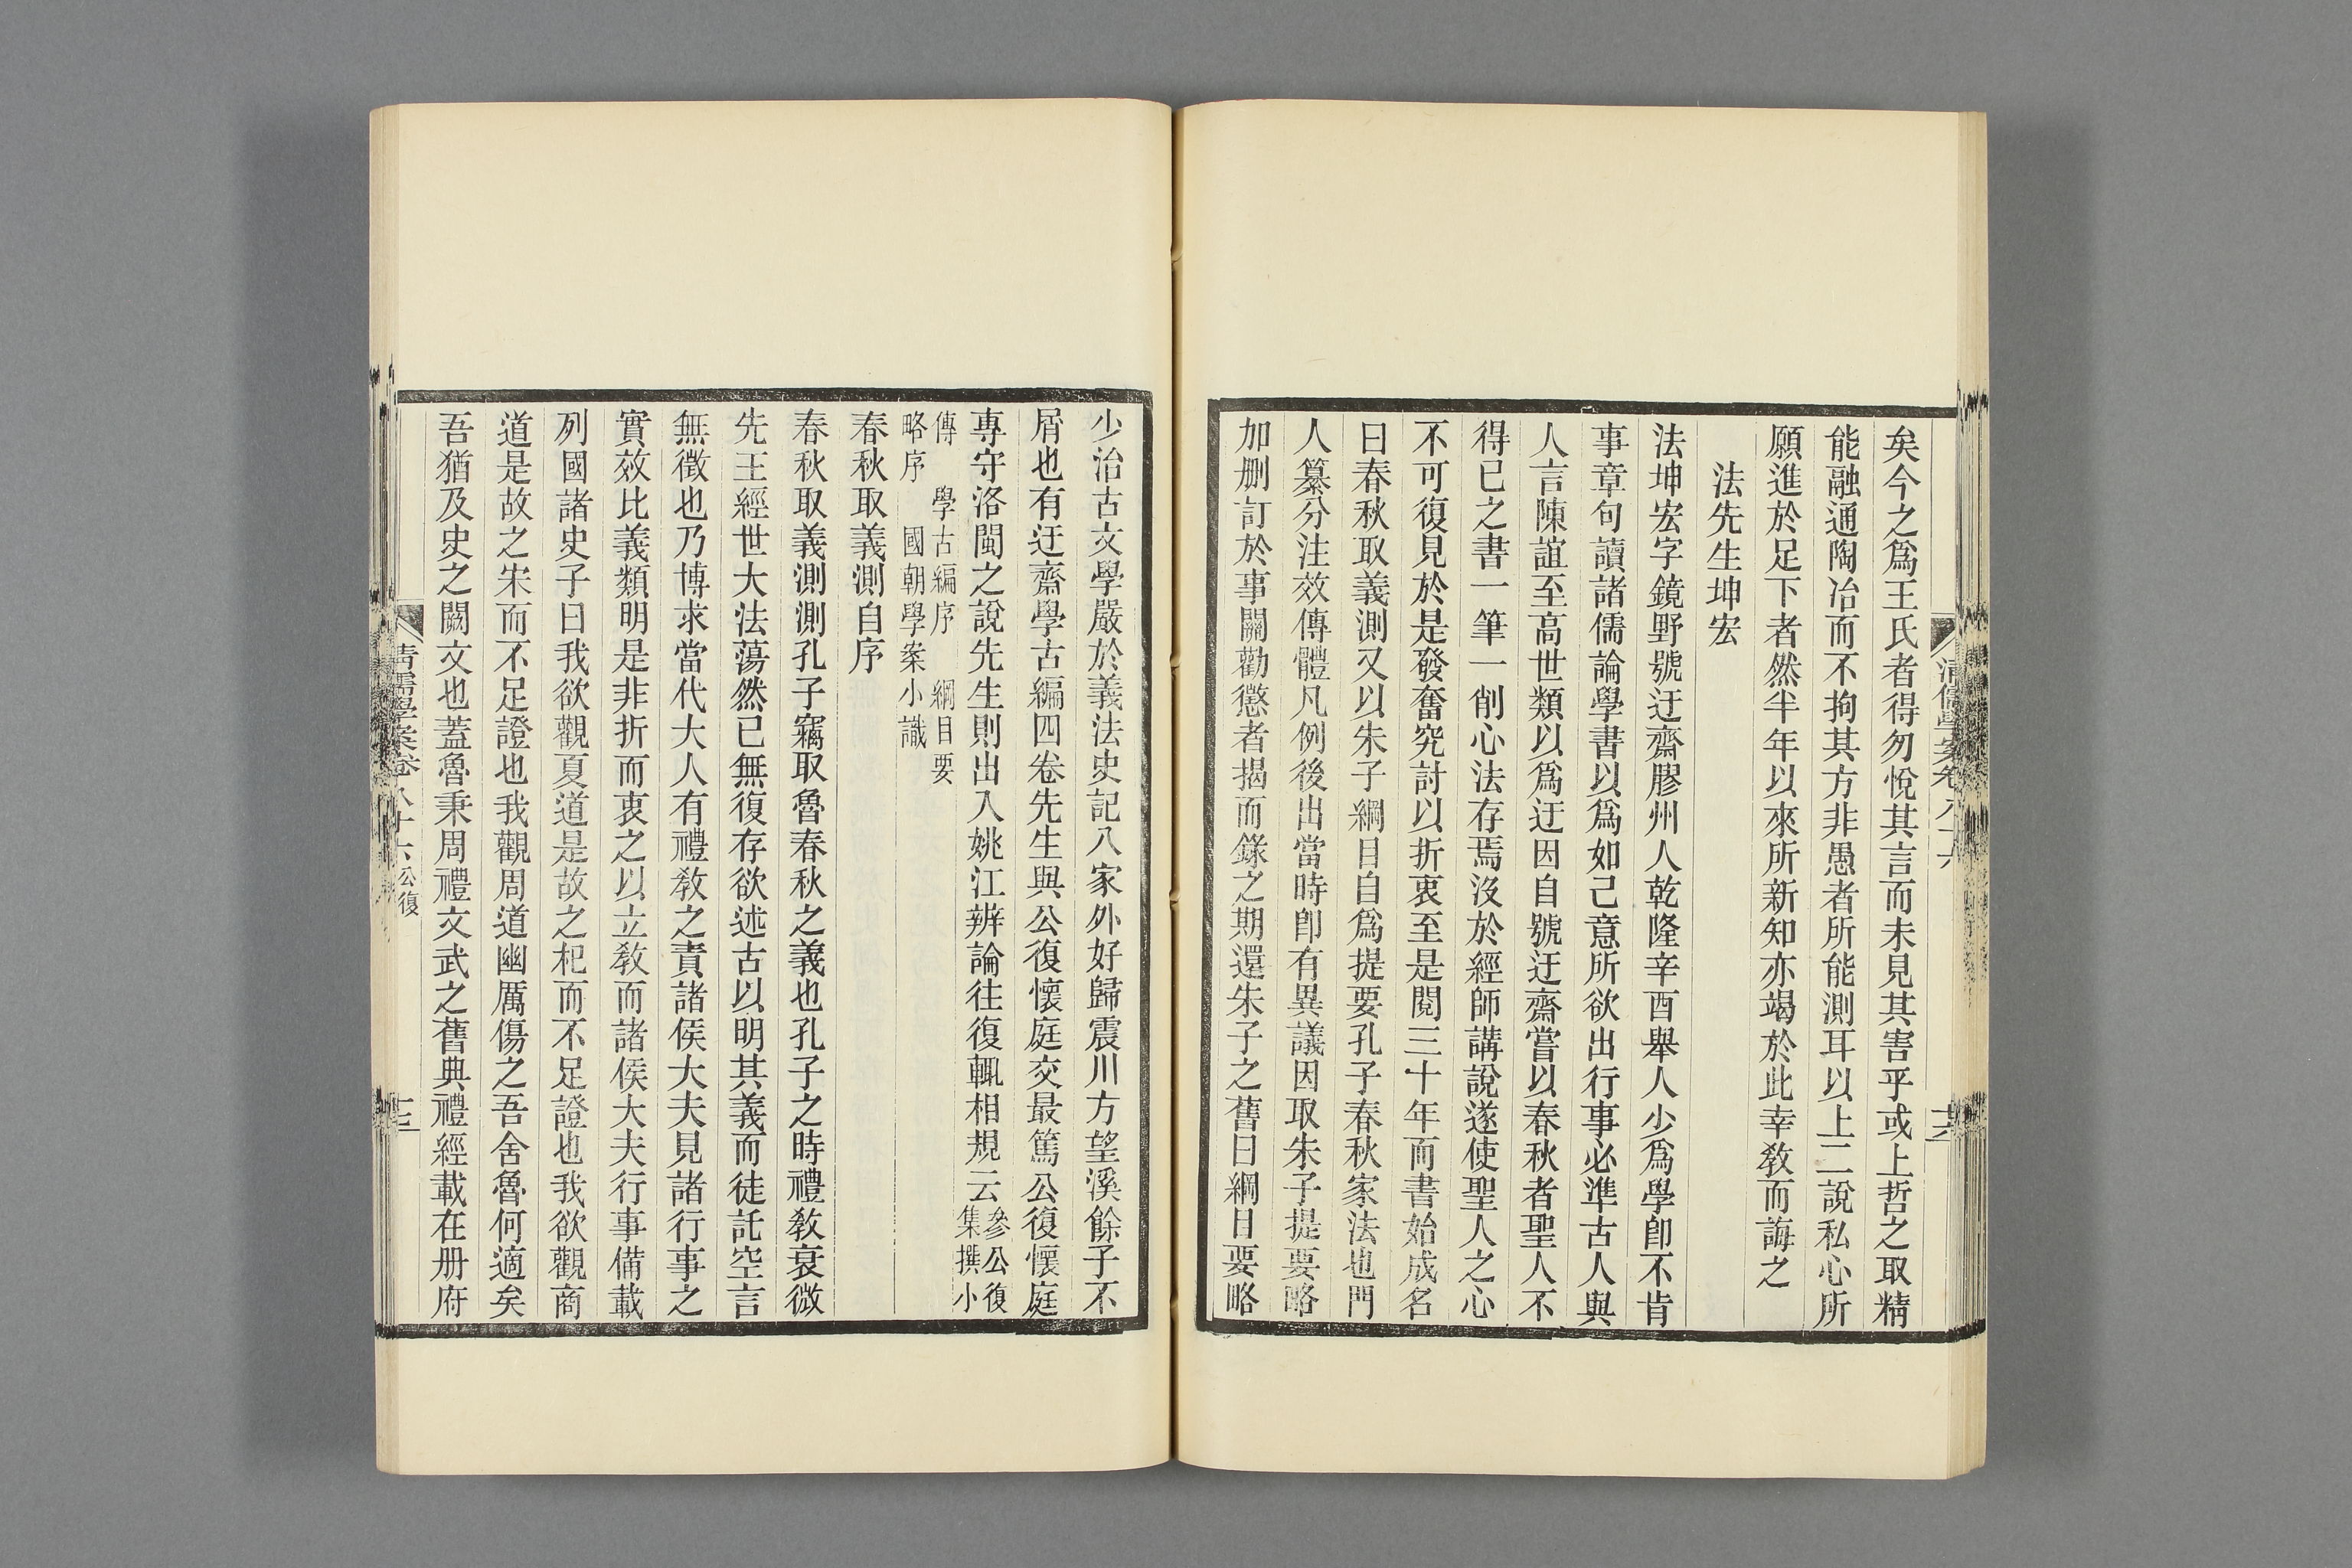 矣今之爲王氏者得勿悅其言而未見其害乎或上哲之取精
能融通陶冶而不拘其方非愚者所能測耳以上二說私心所
願進於足下者然半年以來所新知亦竭於此幸敎而誨之
法先生坤宏
法坤宏字鏡野號迂齋膠州人乾隆辛酉舉人少爲學卽不肯
事章句讀諸儒論學書以爲如己意所欲出行事必準古人與
人言陳誼至高世類以爲迂因自號迂齋嘗以春秋者聖人不
得已之書一筆一削心法存焉沒於經師講說遂使聖人之心
不可復見於是發奮究討以折衷至是閱三十年而書始成名
曰春秋取義測又以朱子綱目自爲提要孔子春秋家法也門
人纂分注效傳體凡例後出當時卽有異議因取朱子提要略
加刪訂於事關勸懲者揭而錄之期還朱子之舊曰綱目要略
清儒學案卷八十六
少治古文學嚴於義法史記八家外好歸震川方望溪餘子不
屑也有迂齋學古編四卷先生與公復懷庭交最篤公復懷庭
專守洛閩之說先生則出入姚江辨論往復輒相規云參公復集撰小
傳 學古編序 綱目要
略序 國朝學案小識
春秋取義測自序
春秋取義測測孔子竊取魯春秋之義也孔子之時禮敎衰微
先王經世大法蕩然已無復存欲述古以明其義而徒託空言
無徵也乃博求當代大人有禮敎之責諸侯大夫見諸行事之
實效比義類明是非折而衷之以立敎而諸侯大夫行事備載
列國諸史子曰我欲觀夏道是故之杞而不足證也我欲觀商
道是故之宋而不足證也我觀周道幽厲傷之吾舍魯何適矣
吾猶及史之闕文也蓋魯秉周禮文武之舊典禮經載在册府
清儒學案卷八十六 公復